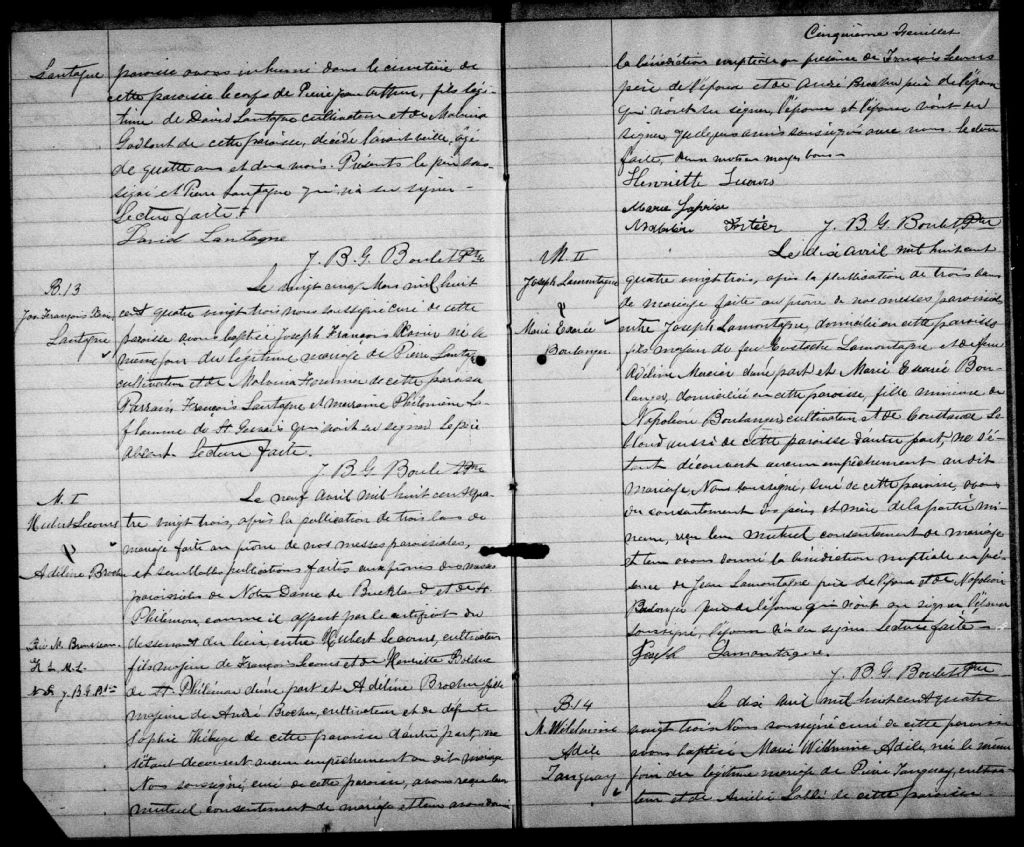 Lantagne
paroisse avons inhumé dans le cimetière de
cette paroisse le corps de Pierre fils légi-
time de David Lantagne cultivateur et de Malvina
Godbout de cette paroisse, décédé l'avant veille, âgé
de quatre ans et deux mois. Présents le père sous-
signé et Pierre Lantagne qui n'a su signer
Lecture faite.
David Lantagne
J. B. G. Boulet Ptre
B. 13
Jos. François
Lantagne
Le vingt cinq Mars mil huit
cent quatre vingt trois nous soussigné curé de cette
paroisse avons baptisé Joseph François né le
même jour du légitime mariage de Pierre Lantagne
cultivateur et de Malvina Fournier de cette paroisse
Parrain François Lantagne et marraine Philomène La-
flamme de St Gervais qui n'ont su signer le père
absent. Lecture faite.
J. B. G. Boulet Ptre
M. I
Hubert Lecours
&
Adéline Brochu
Le neuf avril mil huit cent qua-
tre vingt trois, après la publication de trois bans de
mariage faite au prône de nos messes paroissiales,
et semblables publications faites aux prônes des messes
paroissiales de Notre Dame de Buckland et de St
Philémon, comme il appert par le certificat du
desservant du lieu entre Hubert Lecours, cultivateur
fils majeur de François Lecours et de Henriette Bolduc
de St Philémon d'une part et Adéline Brochu fille
majeure de André Brochu, cultivateur et de défunte
Sophie Théberge de cette paroisse d'autre part, ne
s'étant découvert aucun empêchement au dit mariage
Nous soussigné, curé de cette paroisse, avons reçu leur
mutuel consentement de mariage et leur avons donné
J. B. G. B. Ptre
Cinquième Feuillet
la bénédiction nuptiale en présence de François Lecours
père de l'époux et de André Brochu père de l'épouse
qui n'ont su signer, l'époux et l'épouse n'ont su
signer quelques amis soussignés avec nous. Lecture
faite, deux mots en marge bons
Henriette Lecours
Marie Laprise
Fortier
J. B. G. Boulet Ptre
M. II
Joseph Lamontagne
&
Marie Exarée
Boulanger
Le dix avril mil huit cent
quatre vingt trois, après la publication de trois bans
de mariage faite au prône de nos messes paroissiales
entre Joseph Lamontagne, domicilié en cette paroisse
fils majeur de feu Eustache Lamontagne et de feue
Adéline Mercier d'une part et Marie Exarée Bou-
langer, domiciliée en cette paroisse, fille mineure de
Napoléon Boulanger, cultivateur et de Le-
blond aussi de cette paroisse d'autre part, ne s'é-
tant découvert aucun empêchement au dit
mariage, Nous soussigné, curé de cette paroisse, avons
vu consentement des père et mère de la partie mi-
neure, reçu leur mutuel consentement de mariage
et leur avons donné la bénédiction nuptiale en pré-
sence de Jean Lamontagne père de l'époux et de Napoléon
Boulanger père de l'épouse qui n'ont su signer l'époux
soussigné, l'épouse n'a su signer. Lecture faite
Joseph Lamontagne.
J. B. G. Boulet Ptre
B. 14
M. Wilelmine
Adile
Tanguay
Le dix avril mil huit cent quatre
vingt trois Nous soussigné curé de cette paroisse
avons baptisé Marie Wilmine Adile, née le même
jour du légitime mariage de Pierre Tanguay, cultiva-
teur et de Amélie de cette paroisse